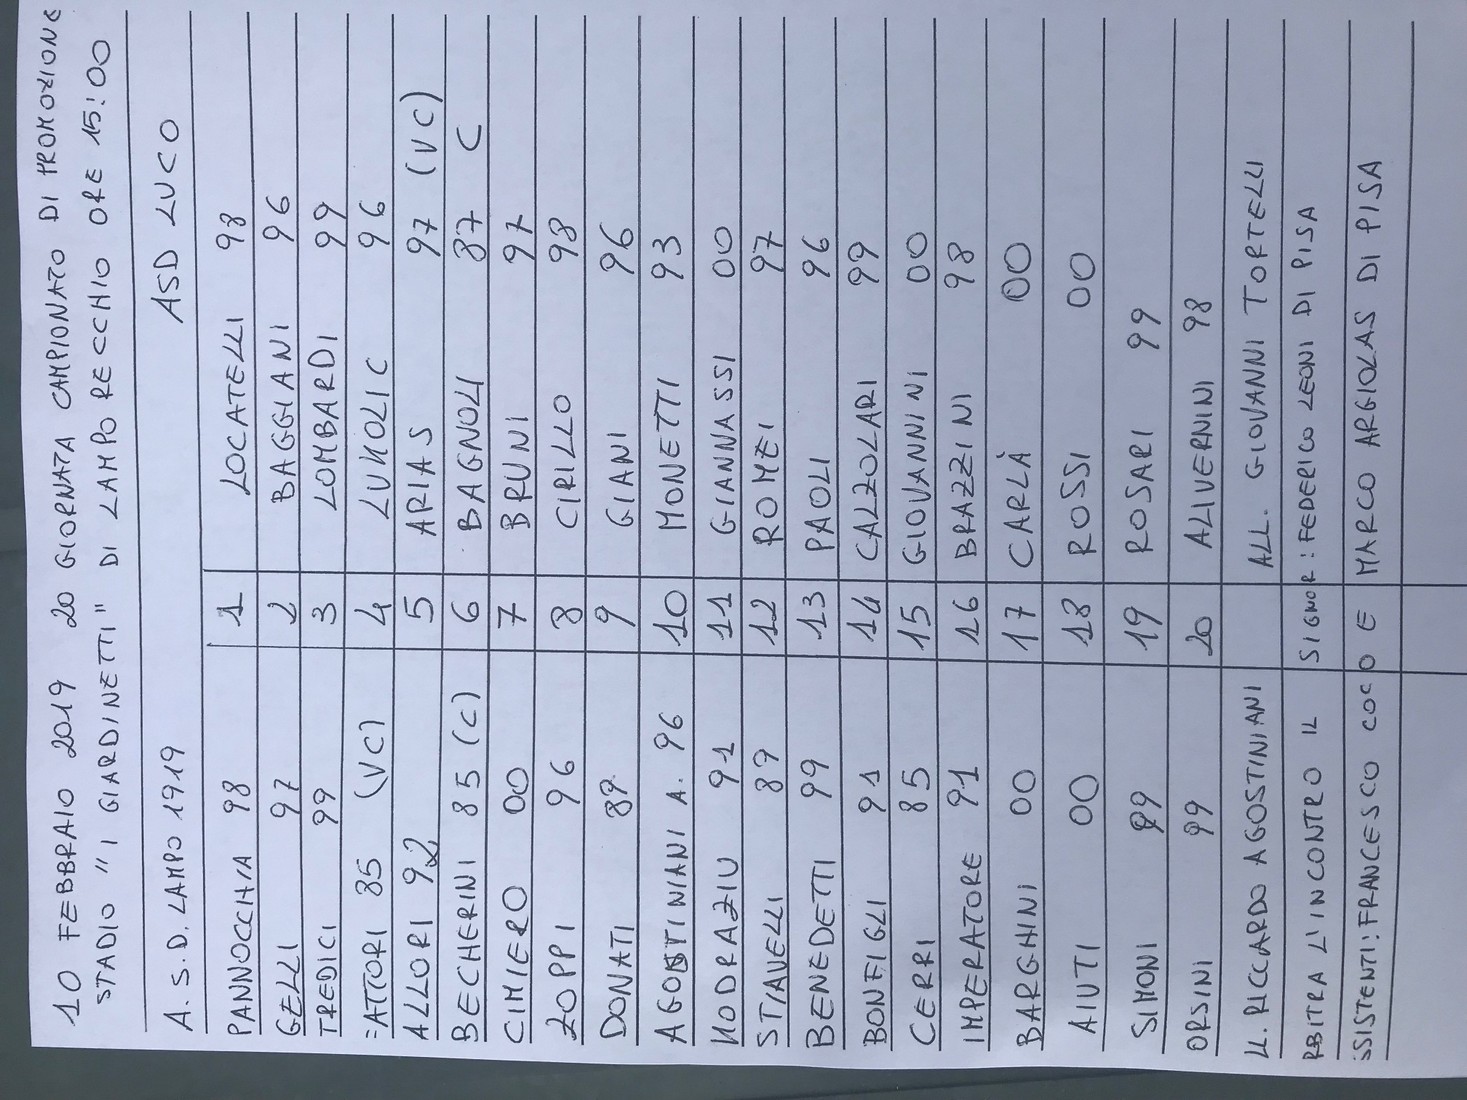 10 FEBBRAIO 2019 20 GIORNATA CAMPIONATO DI PROMOZIONE
STADIO "I GIARDINETTI" DI LAMPORECCHIO ORE 15:00
A.S.D. LAMPO 1919 ASD LUCO
PANNOCCHIA 98 1 LOCATELLI 98
GELLI 97 2 BAGGIANI 96
TREDICI 99 3 LOMBARDI 99
FATTORI 85 (VC) 4 LUKOLIC 96
ALLORI 92 5 ARIAS 97 (VC)
BECHERINI 85 (C) 6 BAGNOLI 87 C
CIMIERO 00 7 BRUNI 97
ZOPPI 96 8 CIRILLO 98
DONATI 89 9 GIANI 96
AGOSTINIANI A. 96 10 MONETTI 93
KODRAZIU 91 11 GIANNASSI 00
STIAVELLI 89 12 ROMEI 97
BENEDETTI 99 13 PAOLI 96
BONFIGLI 91 14 CALZOLARI 99
CERRI 85 15 GIOVANNINI 00
IMPERATORE 91 16 BRAZZINI 98
BARGHINI 00 17 CARLÀ 00
AIUTI 00 18 ROSSI 00
SIMONI 99 19 ROSARI 99
ORSINI 99 20 ALIVERNINI 98
LL. RICCARDO AGOSTINIANI ALL. GIOVANNI TORTELLI
RBITRA L'INCONTRO IL SIGNOR: FEDERICO LEONI DI PISA
SSISTENTI: FRANCESCO COCO E MARCO ARGIOLAS DI PISA